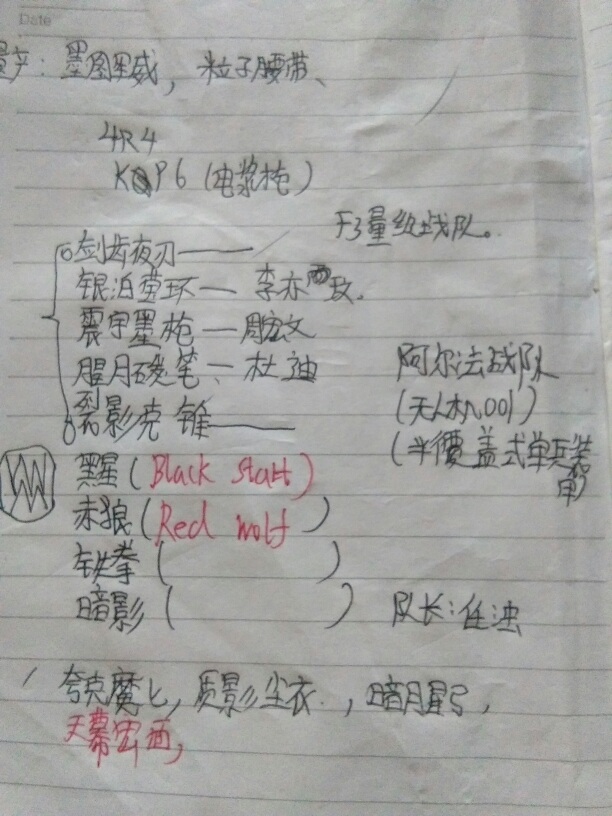 Date
产：墨 威，粒子腰带、
4R4
K P6（电浆枪）
F3量级战队。
剑齿夜刃——
银泊萤环— 李亦 玫.
震宇墨枪—周宏文
腥月 笔— 杜迪
阿尔法战队
裂影克锥——
(无人机001)
(半覆盖式单兵装
甲)
黑星(Black start)
赤狼(Red wolf)
铁拳(　　)
暗影(　　)　队长:任浊
夸克魔匕，质影尘衣.，暗月星弓，
天幕 面，